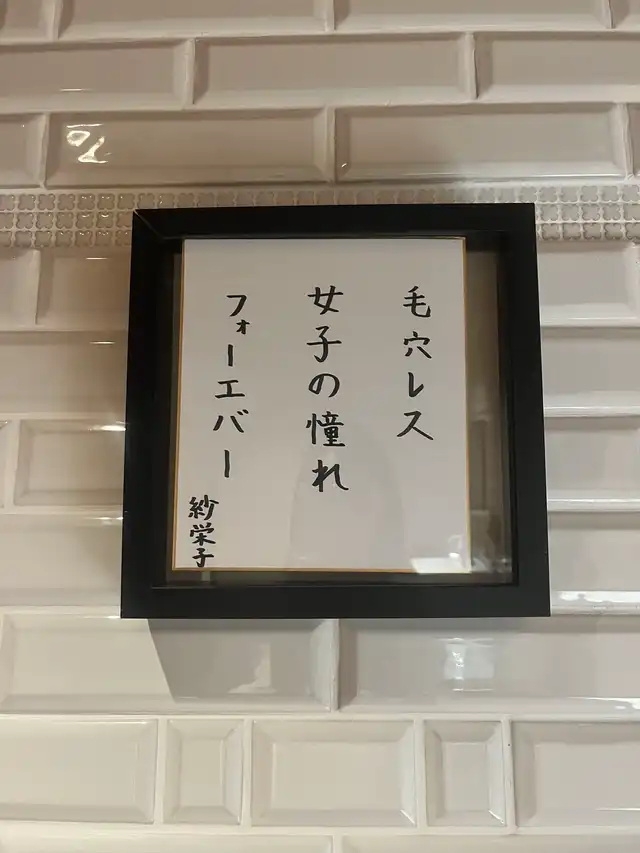 毛穴レス
女子の憧れ
フォーエバー
紗栄子